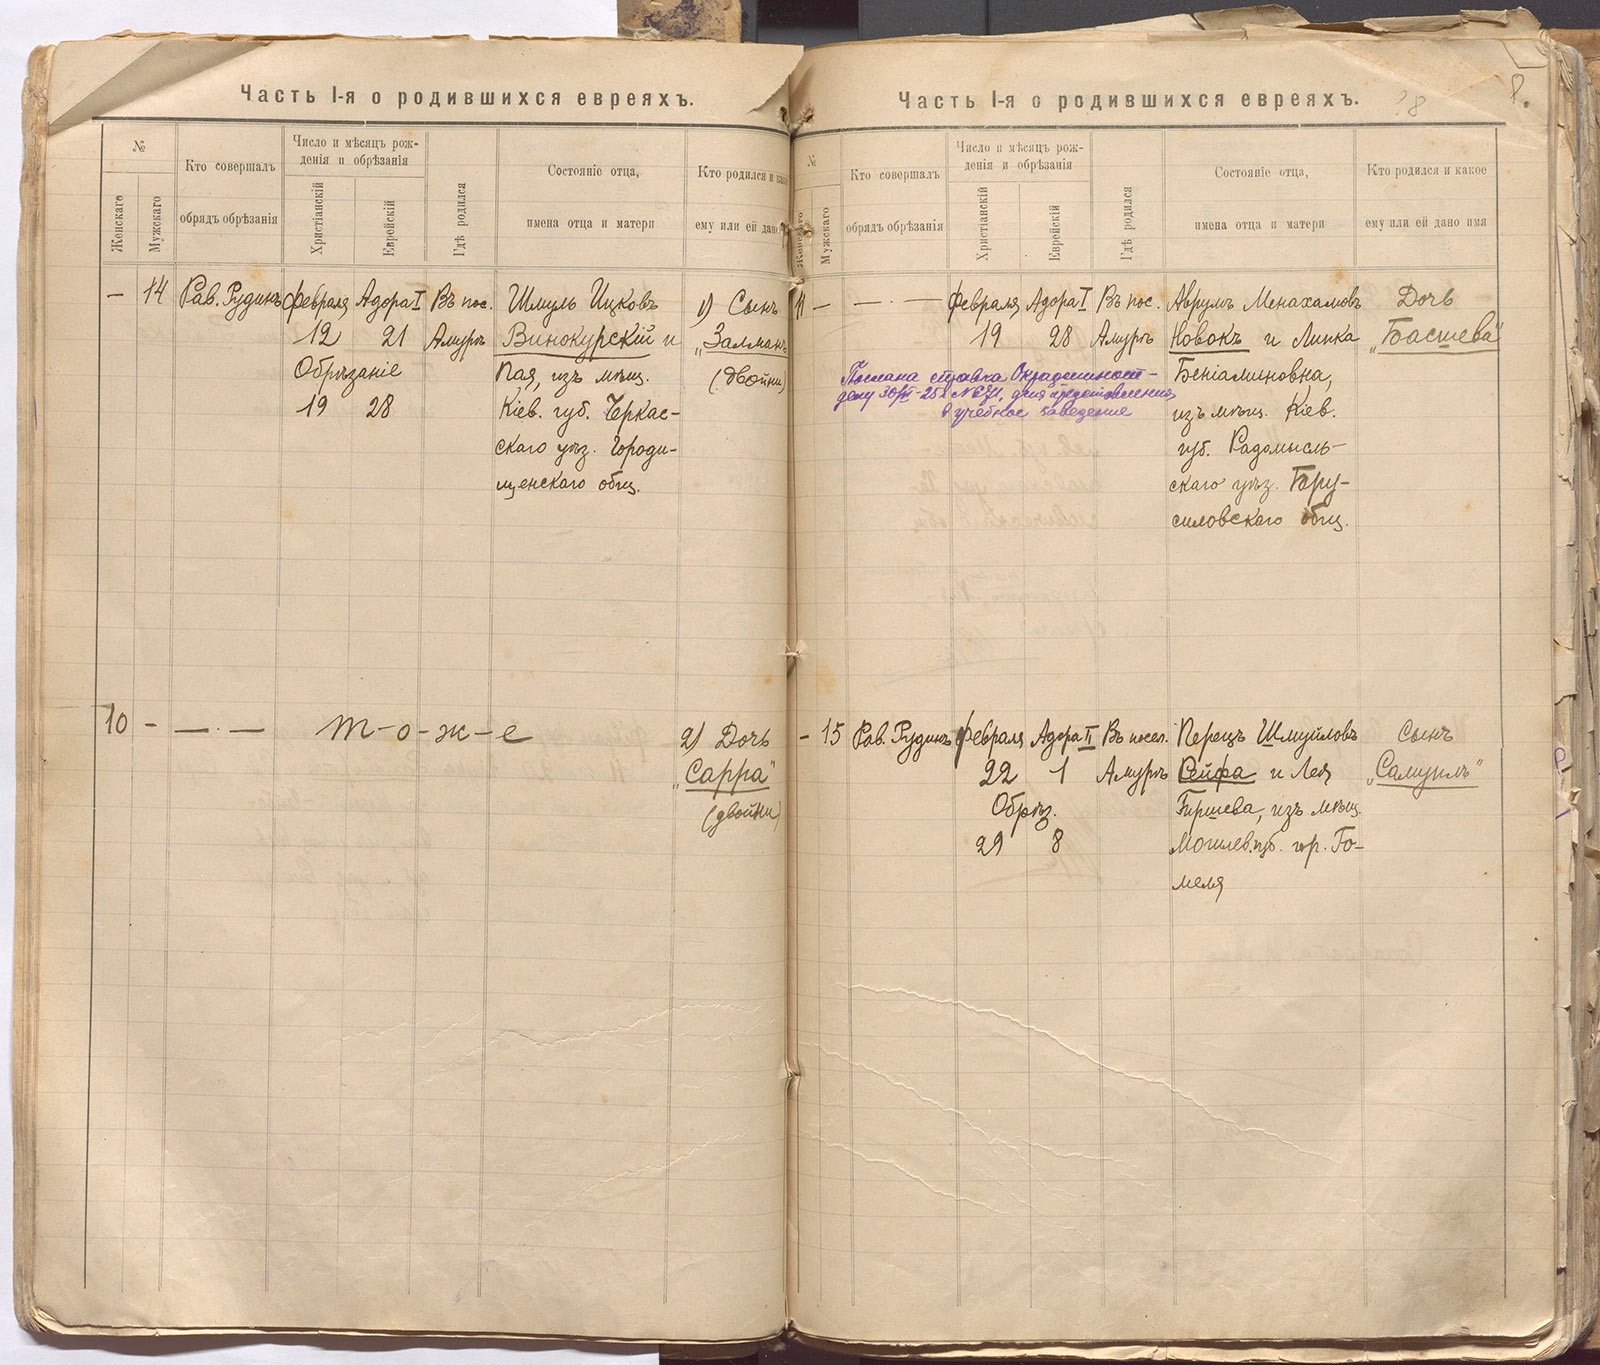 Часть I-я о родившихся евреяхъ.
№
Женскаго
Мужскаго
Кто совершалъ
обрядъ обрѣзанія
Число и мѣсяцъ рож-
денія и обрѣзанія
Христіанскій
Еврейскій
Гдѣ родился
Состояніе отца,
имена отца и матери
Кто родился и како
ему или ей дано
— 14 Рав. Рудинъ Февраля Адора I Въ пос. Шмуль Ицковъ 1) Сынъ
12 21 Амуръ Винокурскій и „Залманъ
Обрѣзаніе Пая, изъ мѣщ. (двойни)
19 28 Кіев. губ. Черкас-
скаго уѣз. Городи-
щенскаго общ.
10 — — . — т-о-ж-е 2) Дочь
„Сарра"
(двойни)
Часть I-я о родившихся евреяхъ.
8.
№
Женскаго
Мужскаго
Кто совершалъ
обрядъ обрѣзанія
Число и мѣсяцъ рож-
денія и обрѣзанія
Христіанскій
Еврейскій
Гдѣ родился
Состояніе отца,
имена отца и матери
Кто родился и какое
ему или ей дано имя
11 — — . — Февраля Адора I Въ пос. Аврумъ Менахамовъ Дочь
19 28 Амуръ Новокъ и Линка „Басшева"
Послана справка
Беніаминовна,
для представления
в учебное заведение
изъ мѣщ. Кіев.
губ. Радомысль-
скаго уѣз. Бру-
силовскаго общ.
— 15 Рав. Рудинъ Февраля Адора II Въ посел. Перецъ Шмуйловъ Сынъ
22 1 Амуръ Сейфа и Лея „Самуилъ"
Обрѣз. Гиршева, изъ мѣщ.
29 8 Могилев. губ. гор. Го-
меля